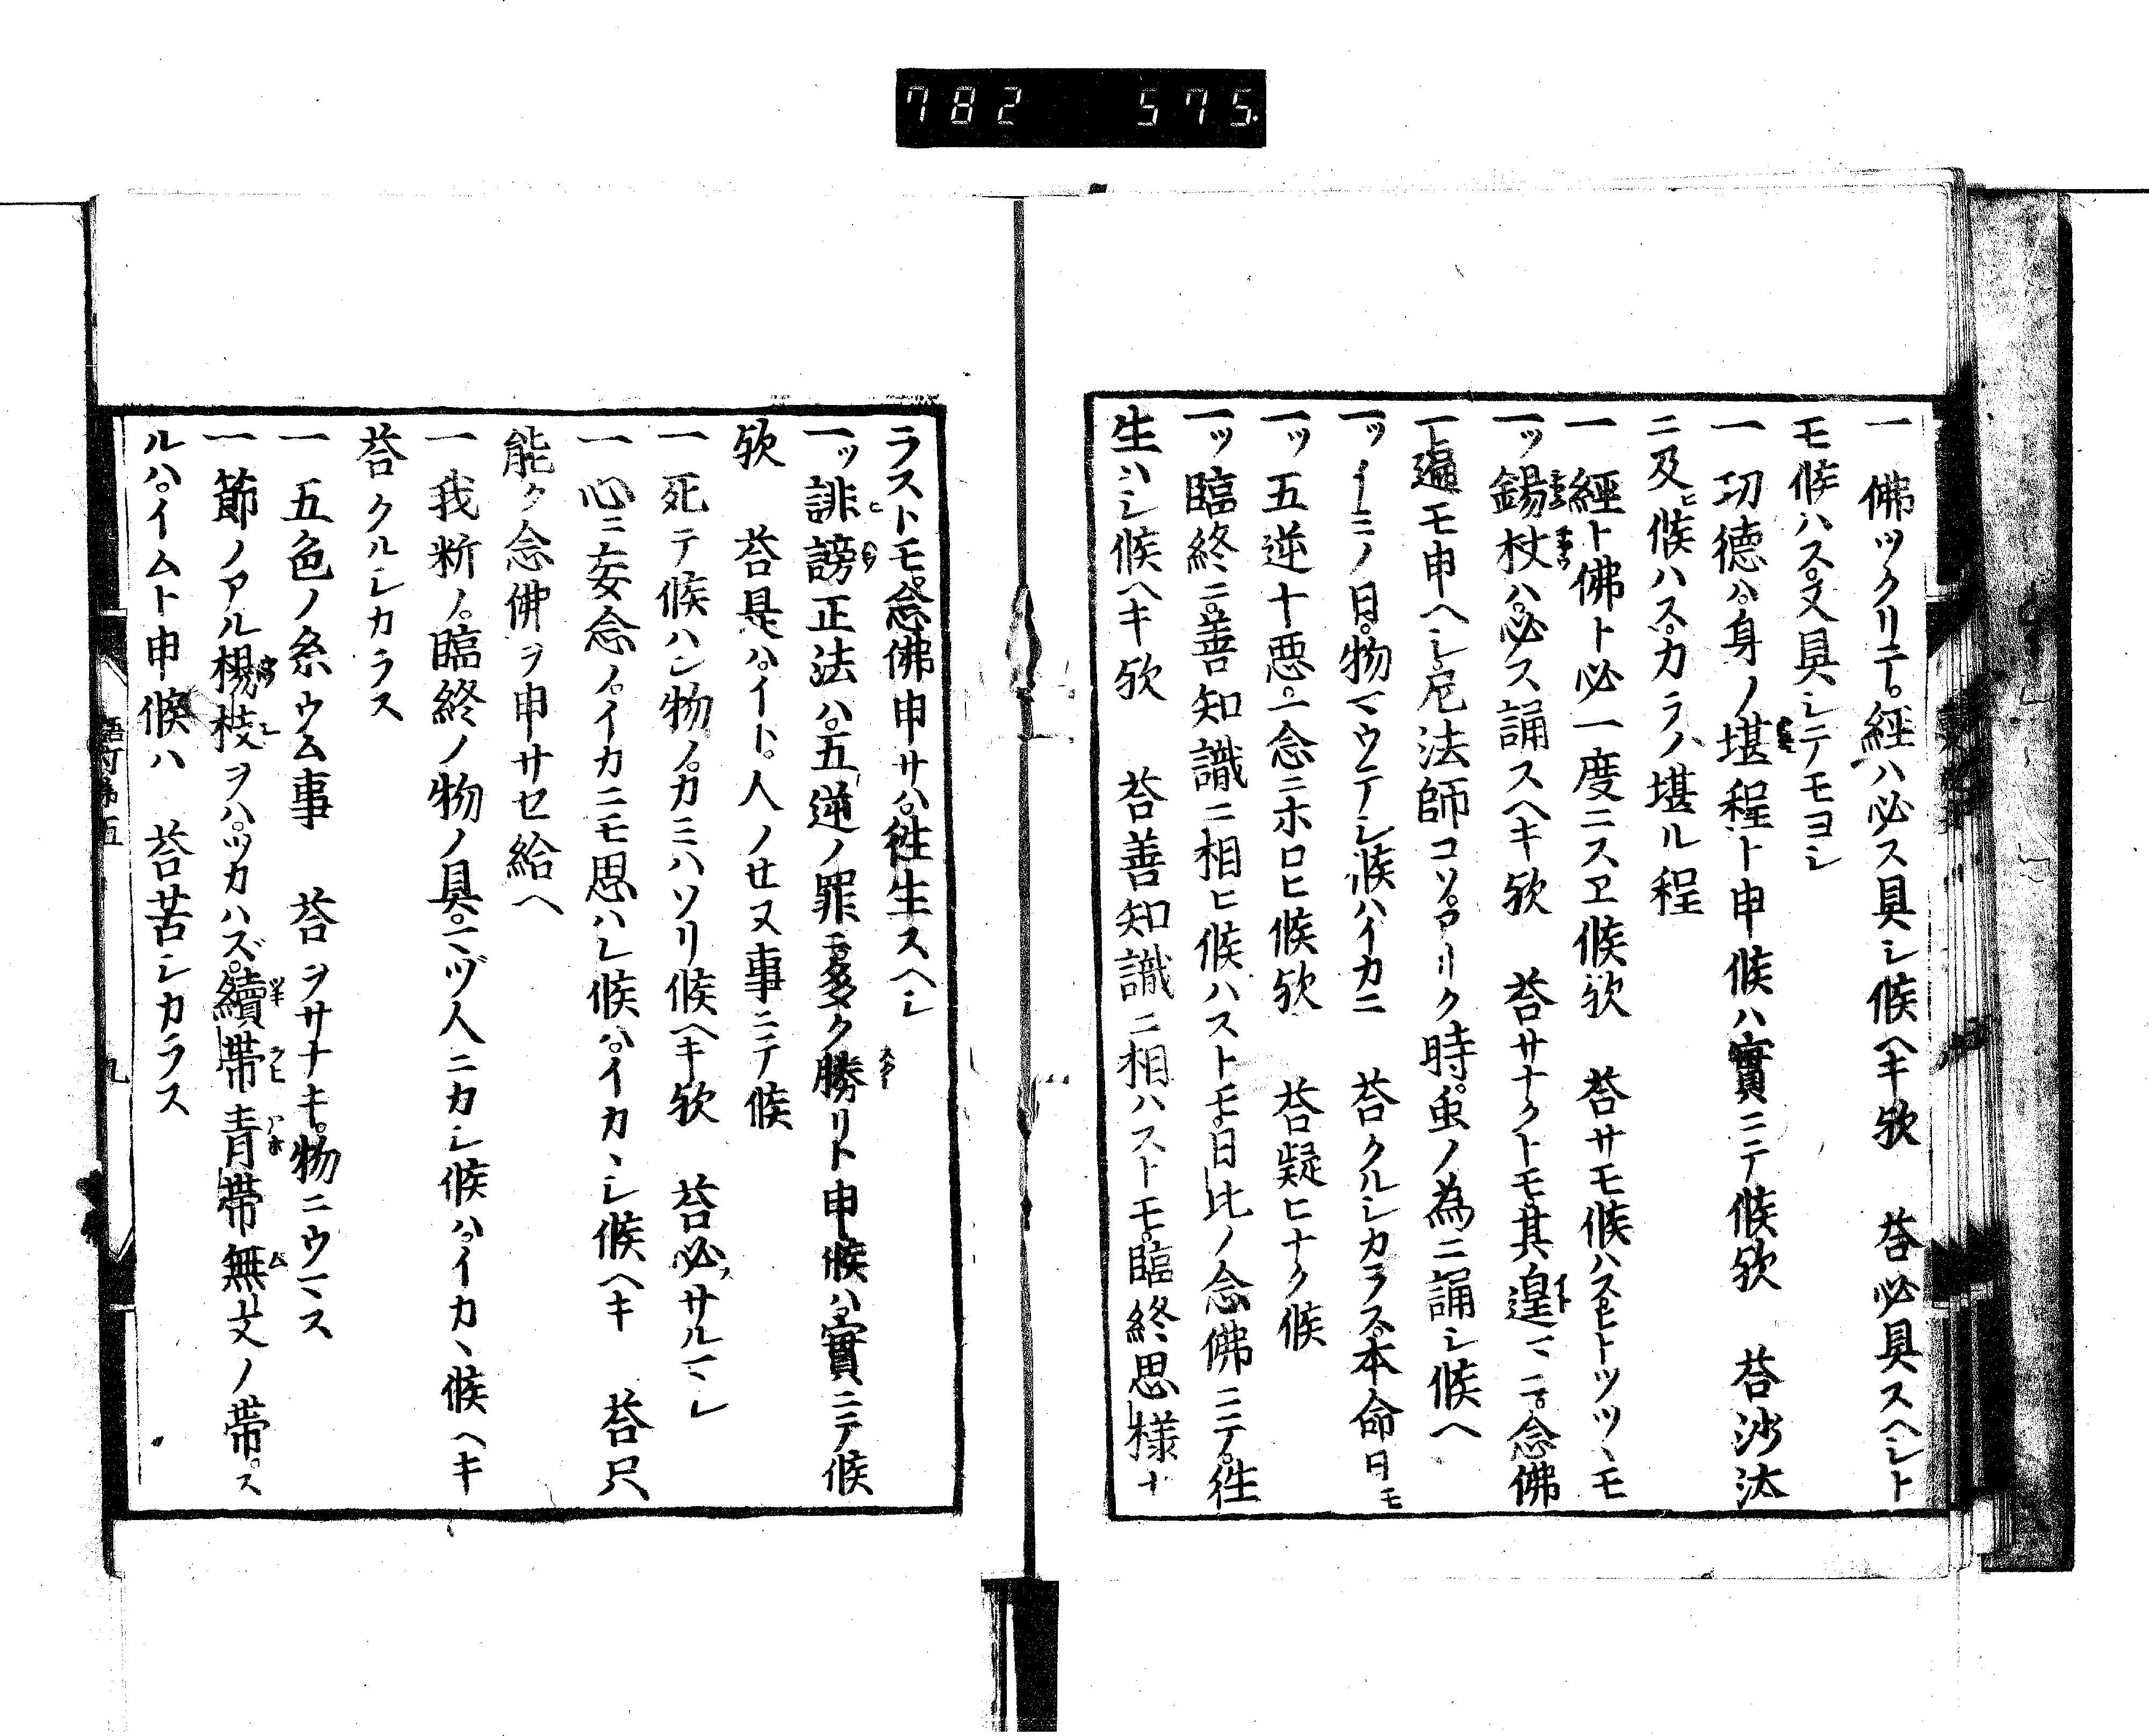 782 575
一 佛ツクリテ。經ハ必ス具シ候ヘキ欤 荅必具スヘシト
モ候ハス。又具シテモヨシ
一 功德ハ。身ノ堪程ト申候ハ實ニテ候欤 荅沙汰
ニ及ヒ候ハス。カラノ堪ル程
一 經ト佛ト必一度ニスヱ候欤 荅サモ候ハスヒトツツヽモ
一ッ錫杖ハ。必ス誦スヘキ欤 荅サナクトモ其遑マニ。念佛
一遍モ申ヘシ。尼法師コソ。アリク時。虫ノ為ニ誦シ候ヘ
一ッイミノ日。物マウテシ候ハイカニ 荅クルシカラス。本命日モ
一ッ五逆十悪。一念ニホロヒ候欤 荅疑ヒナク候
一ッ臨終ニ。善知識ニ相ヒ候ハストモ。日比ノ念佛ニテ。徃
生ハシ候ヘキ欤 荅善知識ニ相ハストモ。臨終思様ナ
ラストモ。念佛申サハ。徃生スヘシ
一ッ誹謗正法ハ。五逆ノ罪ニ多ク勝リト申候ハ。實ニテ候
欤 荅是ハ。イト。人ノセヌ事ニテ候
一 死テ候ハン物ノ。カミハソリ候ヘキ欤 荅必サルマシ
一 心ニ妄念ノ。イカニモ思ハレ候ハ。イカヽシ候ヘキ 荅只
能ク念佛ヲ申サセ給ヘ
一 我斯ノ。臨終ノ物ノ具。マヅ人ニカシ候ハ。イカヽ候ヘキ
荅クルシカラス
一 五色ノ糸ウム事 荅ヲサナキ。物ニウマス
一 節ノアル楊枝ヲハ。ツカハズ。續帯青帯無文ノ帯。ス
ルハ。イムト申候ハ 荅苦シカラス
九